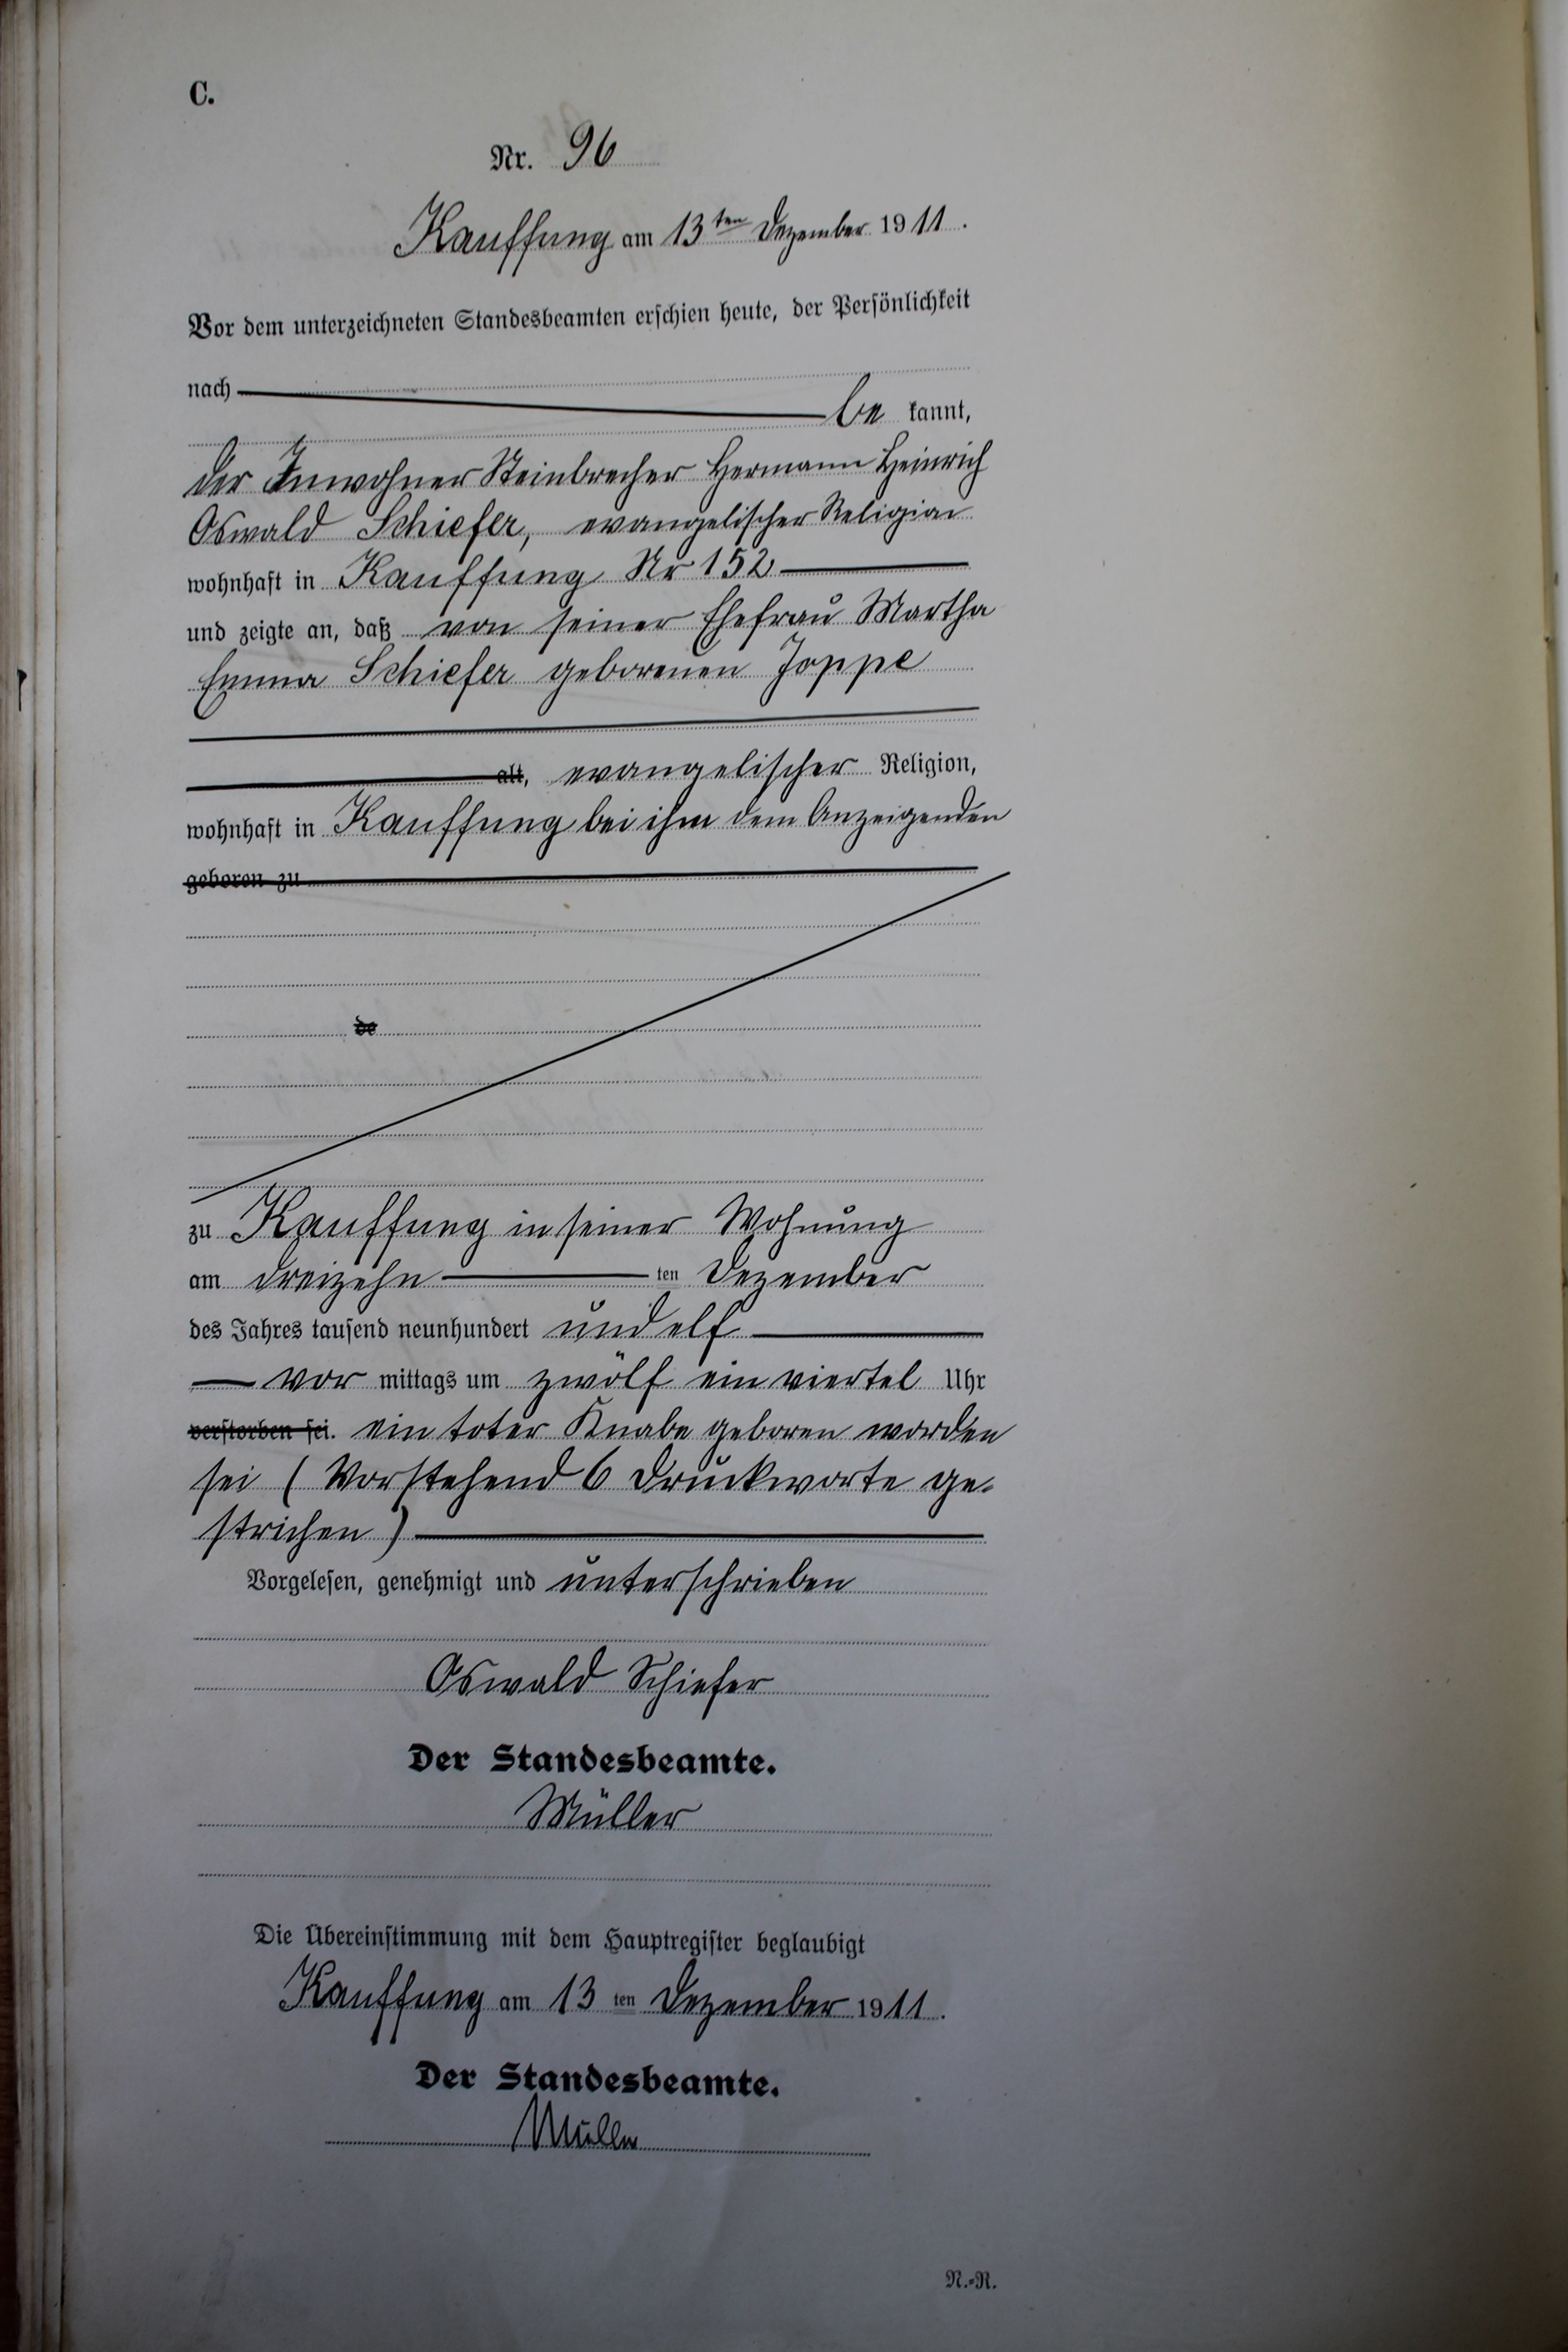 C.
Nr. 96
Kauffung am 13ten Dezember 1911.
Vor dem unterzeichneten Standesbeamten erschien heute, der Persönlichkeit
nach
be kannt,
der Inwohner Steinbrecher Hermann Heinrich
Oswald Schiefer, evangelischer Religion
wohnhaft in Kauffung Nr 152
und zeigte an, daß von seiner Ehefrau Martha
Emma Schiefer geborenen Joppe
alt, evangelischer Religion,
wohnhaft in Kauffung bei ihm dem Anzeigenden
geboren zu
de
zu Kauffung in seiner Wohnung
am dreizehn ten Dezember
des Jahres tausend neunhundert und elf
vor mittags um zwölf ein viertel Uhr
verstorben sei. ein toter Knabe geboren worden
sei (Vorstehend 6 Druckworte ge-
strichen)
Vorgelesen, genehmigt und unterschrieben
Oswald Schiefer
Der Standesbeamte.
Müller
Die Übereinstimmung mit dem Hauptregister beglaubigt
Kauffung am 13 ten Dezember 1911.
Der Standesbeamte.
Müller
N.-R.